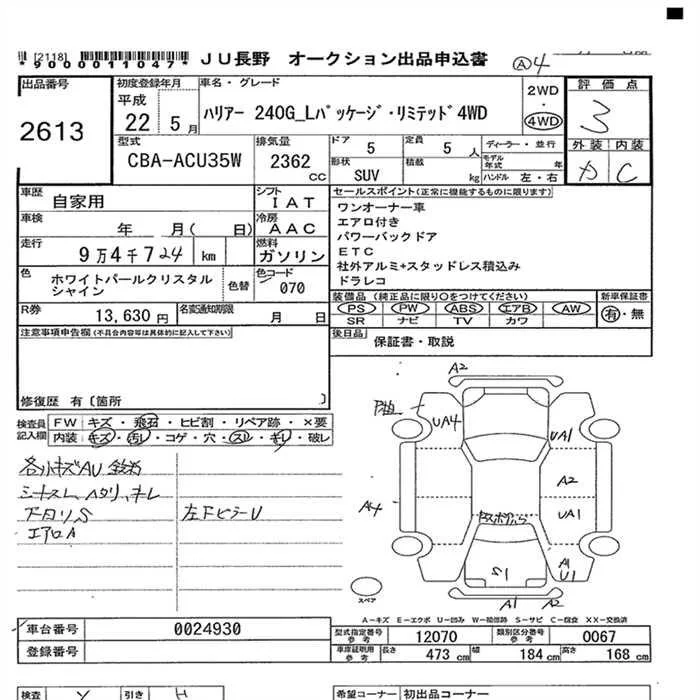 [2118]
*9000011047* JU長野 オークション出品申込書 Ⓐ4
出品番号 初度登録年月 車名・グレード 評価点
2613 平成 22 5月 ハリアー 240G_Lパッケージ・リミテッド4WD 2WD ・ 4WD 3
型式 排気量 ドア 5 定員 5人 ディーラー・並行 外装 内装
CBA-ACU35W 2362 CC 形状 SUV 積載 kg モデル年式 年 ハンドル 左・右 C
車歴 自家用 シフト IAT セールスポイント(正常に機能するものに限ります)
車検 年 月( 日) 冷房 AAC ワンオーナー車
エアロ付き
走行 9万4千724 km 燃料 ガソリン パワーバックドア
ETC
色 ホワイトパールクリスタルシャイン 色替 色コード 070 社外アルミ+スタッドレス積込み
ドラレコ
R券 13,630円 名変通知期限 月 日 装備品(純正品に限り○をつけてください) 新車保証書
PS PW ABS エアB AW 有・無
SR ナビ TV カワ
注意事項申告欄(不具合内容等は具体的に記入して下さい) 後日品 保証書・取説
修復歴 有〔箇所 〕
検査員記入欄 FW キズ・飛石・ヒビ割・リペア跡・×要
内装 キズ・汚れ・コゲ・穴・スレ・キレ・破レ
各小キズAU
下廻りS 左Fピラー U
エアロA
A2
UA4
UA1
A2
A4
UA1
A1
U1
S1
A1 A2
スペア
A-キズ E-エクボ U-凹み W-補修跡 S-サビ C-腐食 XX-交換済
車台番号 0024930 型式指定番号 参考 12070 類別区分番号 参考 0067
登録番号 車庫証明用 参考 長さ 473 cm 幅 184 cm 高さ 168 cm
検査 引き 希望コーナー 初出品コーナー